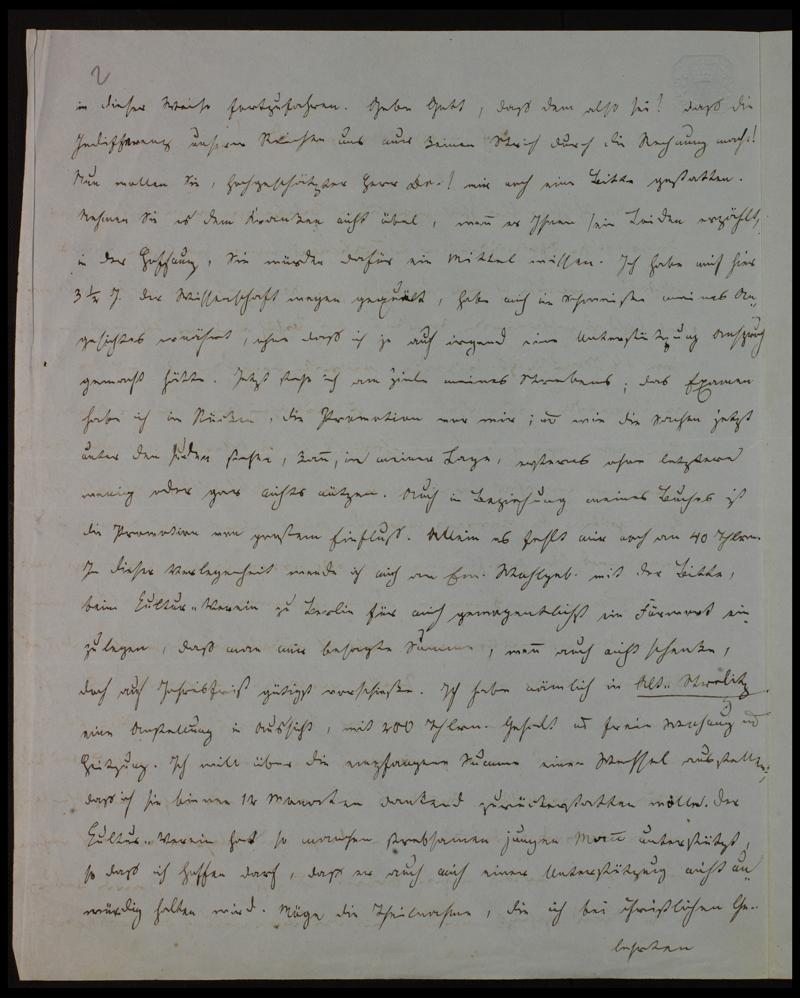 2
in dieser Weise fortzufahren. Gebe Gott, daß dem also sei! daß die
Indifferenz unserer Reichen uns nur keinen Strich durch die Rechnung mach!
Nun wollen Sie, hochgeschätzter Herr Dr.! mir noch eine Bitte gestatten.
Nehmen Sie es dem Kranken nicht übel, wenn er Ihnen sein Leiden erzählt,
in der Hoffnung, Sie würden dafür ein Mittel wissen. Ich habe mich hier
3½ J. der Wissenschaft wegen gequält, habe mich im Schweiße meines An-
gesichtes ernährt, ohne daß ich je auf irgend eine Unterstützung Anspruch
gemacht hätte. Jetzt stehe ich am Ziele meines Strebens; das Examen
habe ich im Rücken, die Promotion vor mir; u wie die Sachen jetzt
unter den Juden stehen, kan̅, in meiner Lage, ersteres ohne letztere
wenig oder gar nichts nützen. Auch in Beziehung meines Buches ist
die Promotion von großem Einfluß. Allein es fehlt mir noch an 40 Thlrn.
In dieser Verlegenheit wende ich mich an Ew. Wohlgeb. mit der Bitte,
beim Kultur-Verein zu Berlin für mich gewogentlichst ein Fürwort ein-
zulegen, daß man mir besagte Summe, wen̅ auch nicht schenke,
doch auf Jahresfrist gütigst vorschieße. Ich habe nämlich in Alt-Strelitz
eine Anstellung in Aussicht, mit 200 Thlrn. Gehalt u freie Wohnung und
Heitzung. Ich will über die empfangene Summe einen Wechsel ausstellen,
daß ich sie binnen 12 Monaten dankend zurückerstatten wolle. Der
Kultur-Verein hat so manchen strebsamen jungen Man̅ unterstützt,
so daß ich hoffen darf, daß er auch mich einer Unterstützung nicht un-
würdig halten wird. Möge die Theilnahme, die ich bei christlichen Ge-
lehrten